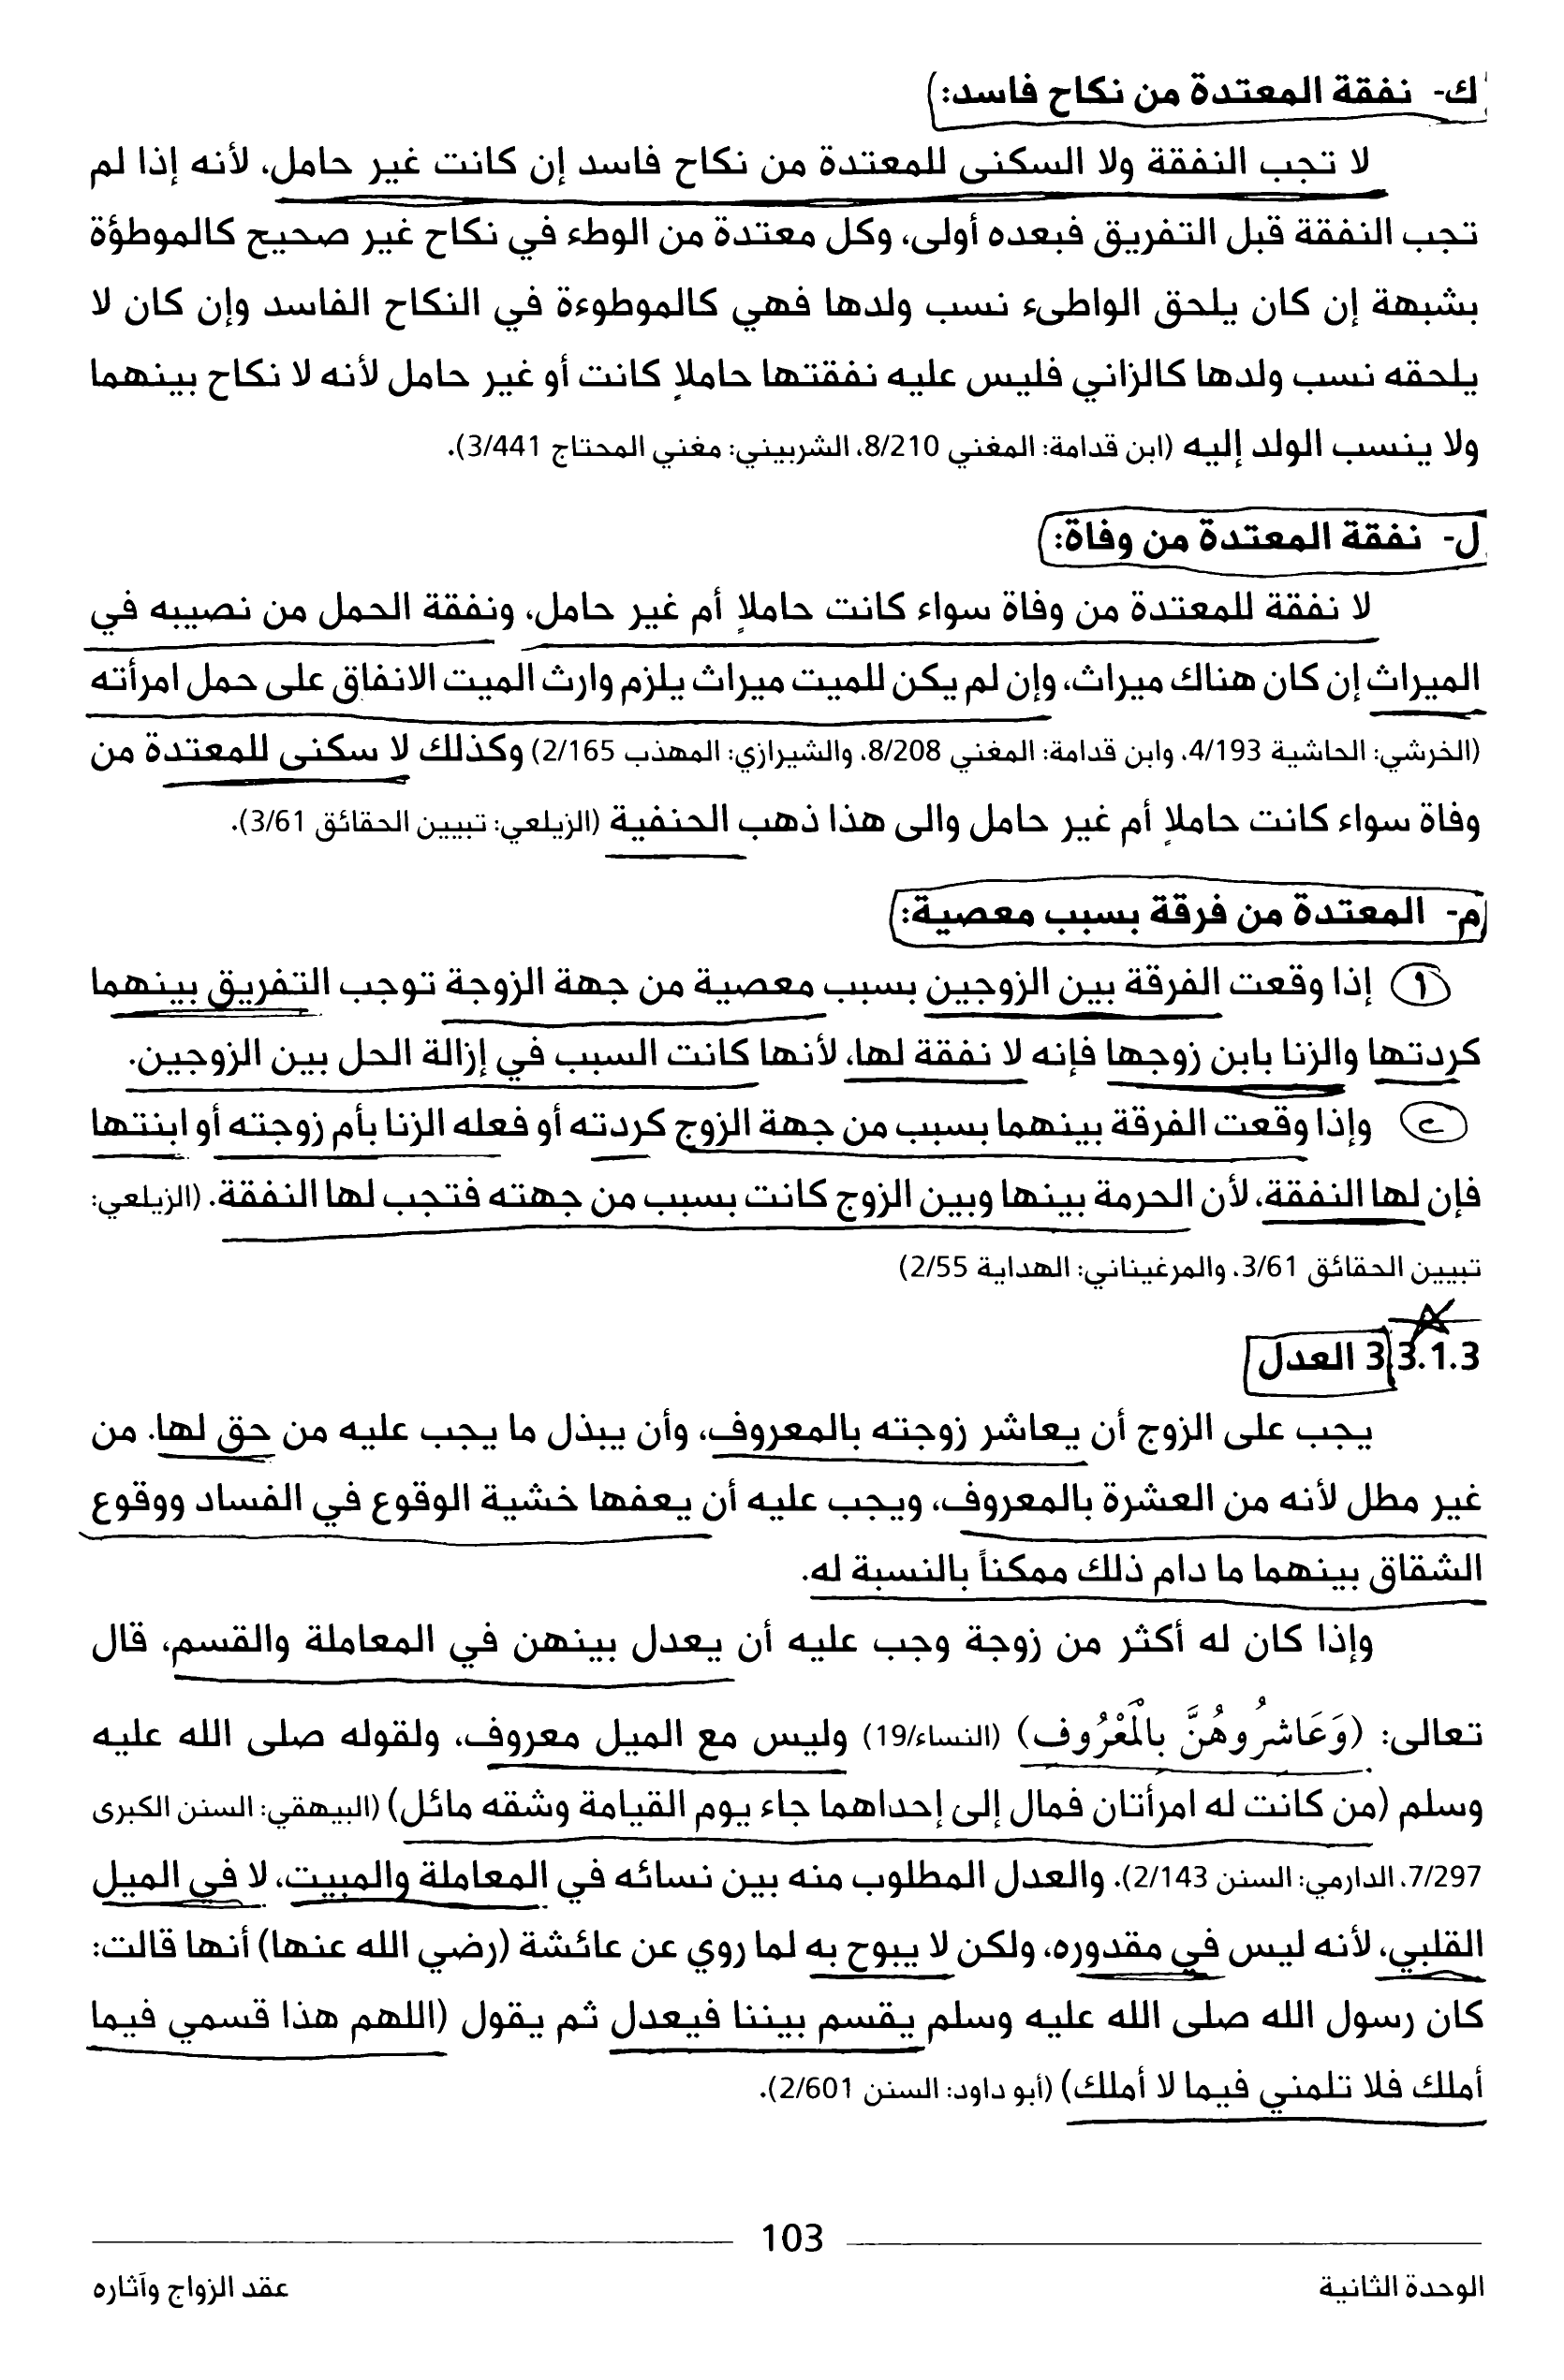 ك- نفقة المعتدة من نكاح فاسد:
لا تجب النفقة ولا السكنى للمعتدة من نكاح فاسد إن كانت غير حامل، لأنه إذا لم
تجب النفقة قبل التفريق فبعده أولى، وكل معتدة من الوطء في نكاح غير صحيح كالموطؤة
بشبهة إن كان يلحق الواطىء نسب ولدها فهي كالموطوءة في النكاح الفاسد وإن كان لا
يلحقه نسب ولدها كالزاني فليس عليه نفقتها حاملاٍ كانت أو غير حامل لأنه لا نكاح بينهما
ولا ينسب الولد إليه (ابن قدامة: المغني 8/210، الشربيني: مغني المحتاج 3/441).
ل- نفقة المعتدة من وفاة:
لا نفقة للمعتدة من وفاة سواء كانت حاملاٍ أم غير حامل، ونفقة الحمل من نصيبه في
الميراث إن كان هناك ميراث، وإن لم يكن للميت ميراث يلزم وارث الميت الانفاق على حمل امرأته
(الخرشي: الحاشية 4/193، وابن قدامة: المغني 8/208، والشيرازي: المهذب 2/165) وكذلك لا سكنى للمعتدة من
وفاة سواء كانت حاملاٍ أم غير حامل والى هذا ذهب الحنفية (الزيلعي: تبيين الحقائق 3/61).
م- المعتدة من فرقة بسبب معصية:
١ إذا وقعت الفرقة بين الزوجين بسبب معصية من جهة الزوجة توجب التفريق بينهما
كردتها والزنا بابن زوجها فإنه لا نفقة لها، لأنها كانت السبب في إزالة الحل بين الزوجين.
٢ وإذا وقعت الفرقة بينهما بسبب من جهة الزوج كردته أو فعله الزنا بأم زوجته أو ابنتها
فإن لها النفقة، لأن الحرمة بينها وبين الزوج كانت بسبب من جهته فتجب لها النفقة. (الزيلعي:
تبيين الحقائق 3/61، والمرغيناني: الهداية 2/55)
3.3.1.3 العدل
يجب على الزوج أن يعاشر زوجته بالمعروف، وأن يبذل ما يجب عليه من حق لها. من
غير مطل لأنه من العشرة بالمعروف، ويجب عليه أن يعفها خشية الوقوع في الفساد ووقوع
الشقاق بينهما ما دام ذلك ممكناً بالنسبة له.
وإذا كان له أكثر من زوجة وجب عليه أن يعدل بينهن في المعاملة والقسم، قال
تعالى: (وَعَاشِرُوهُنَّ بِالْمَعْرُوفِ) (النساء/19) وليس مع الميل معروف، ولقوله صلى الله عليه
وسلم (من كانت له امرأتان فمال إلى إحداهما جاء يوم القيامة وشقه مائل) (البيهقي: السنن الكبرى
7/297، الدارمي: السنن 2/143). والعدل المطلوب منه بين نسائه في المعاملة والمبيت، لا في الميل
القلبي، لأنه ليس في مقدوره، ولكن لا يبوح به لما روي عن عائشة (رضي الله عنها) أنها قالت:
كان رسول الله صلى الله عليه وسلم يقسم بيننا فيعدل ثم يقول (اللهم هذا قسمي فيما
أملك فلا تلمني فيما لا أملك) (أبو داود: السنن 2/601).
103
الوحدة الثانية
عقد الزواج وآثاره